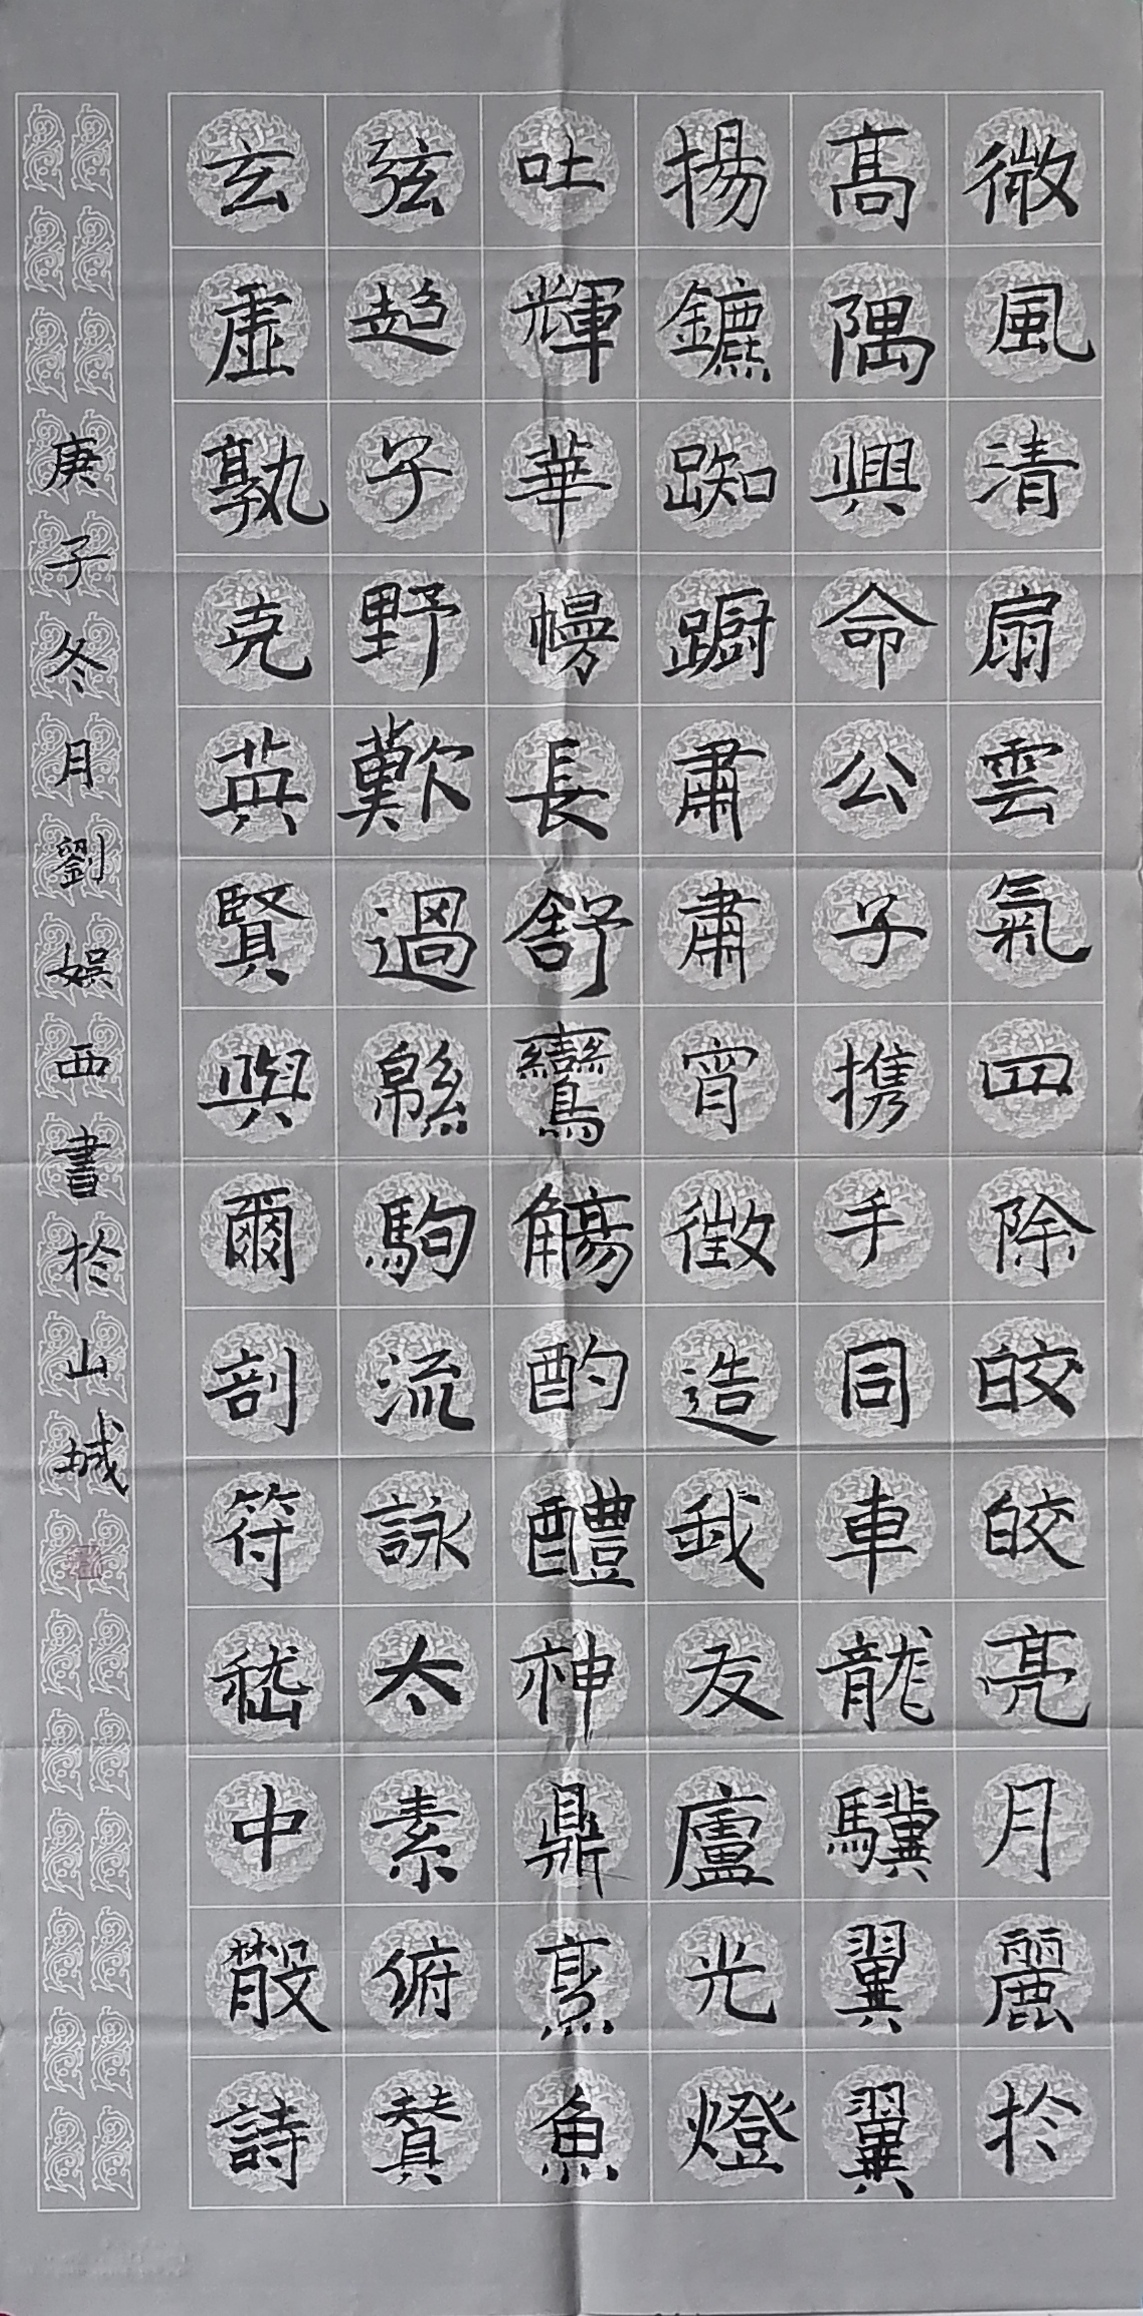 微風清扇雲氣四除皎皎亮月麗於
高隅興命公子携手同車龍驥翼翼
揚鑣踟蹰肅肅宵徵造我友廬光燈
吐輝華幔長舒鸞觴酌醴神鼎烹魚
弦超子野歎過緜駒流詠太素俯賛
玄虛孰克英賢與爾剖符嵇中散詩
庚子冬月劉娛西書於山城